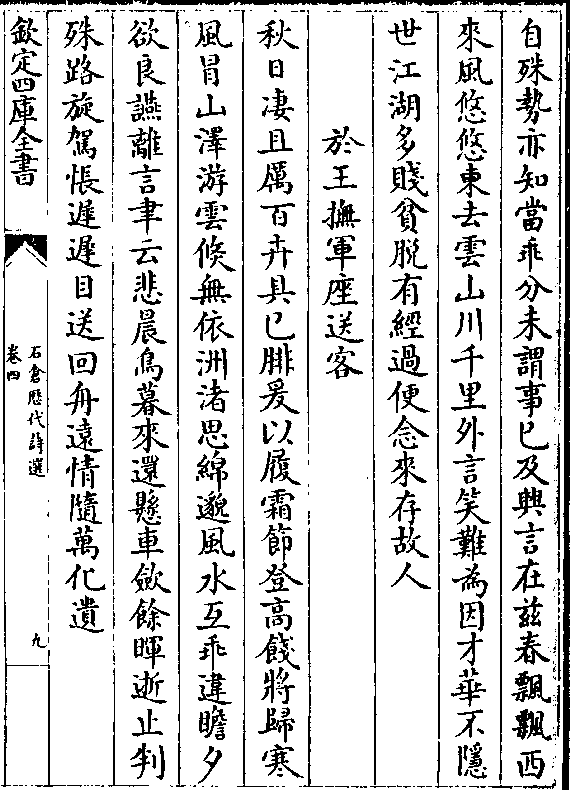 自殊勢亦知當乖分未謂事已及興言在兹春飄飄西
來風悠悠東去雲山川千里外言笑難為因才華不隱
世江湖多賤貧脱有經過便念來存故人
於王撫軍座送客
秋日凄且厲百卉具已腓爰以履霜節登高餞將歸寒
風冐山澤游雲倐無依洲渚思綿邈風水互乖違瞻夕
欲良讌離言聿云悲晨鳥暮來還懸車歛餘暉逝止判
殊路旋駕悵遲遲目送回舟遠情隨萬化遺
欽定四庫全書
石倉歴代詩選
卷四
九